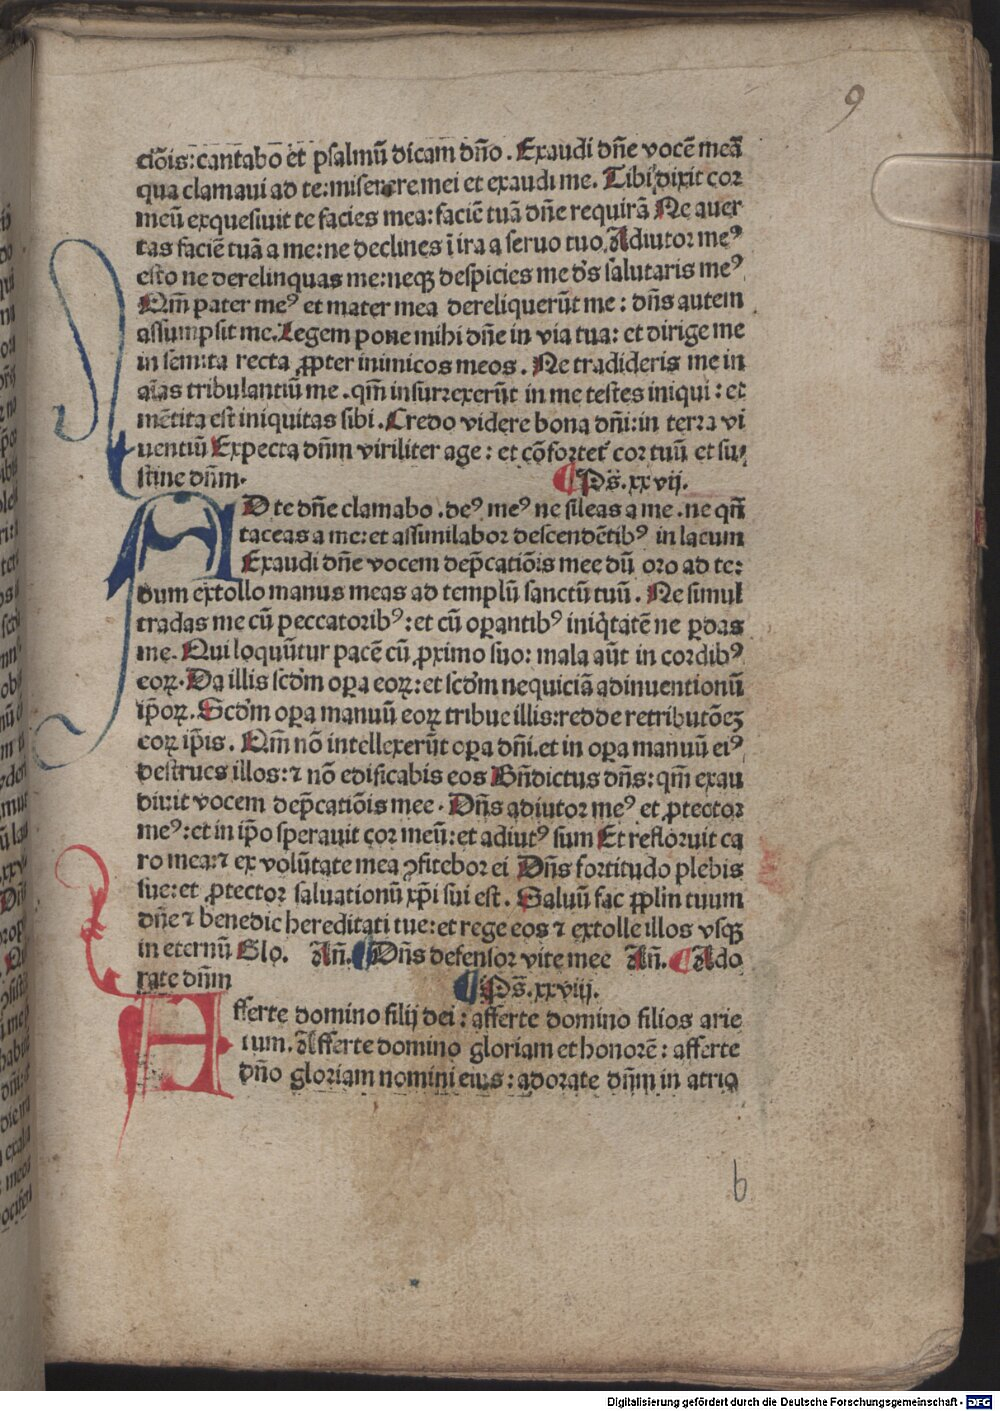 9
ciōis: cantabo et psalmū dicam dño. Exaudi dñe vocē meā
qua clamaui ad te: miserere mei et exaudi me. Tibi dixit cor
meū exquesiuit te facies mea: faciē tuā dñe requirā Ne auer
tas faciē tuā a me: ne declines ī ira a seruo tuo. Adiutor meꝰ
esto ne derelinquas me: neqꝫ despicies me dꝰs salutaris meꝰ
Qm̄ pater meꝰ et mater mea dereliquerūt me: dñs autem
assumpsit me. Legem pone mihi dñe in via tua: et dirige me
in semita recta ꝓpter inimicos meos. Ne tradideris me in
aīas tribulantiū me. qm̄ insurrexerūt in me testes iniqui: et
mētita est iniquitas sibi. Credo videre bona dñi: in terra vi
uentiū Expecta dñm viriliter age: et cōfortetᷣ cor tuū et su
stine dñm.
Ps̄. xxvij.
AD te dñe clamabo. deꝰ meꝰ ne sileas a me. ne qñ
taceas a me: et assimilabor descendētibꝰ in lacum
Exaudi dñe vocem dep̄catiōis mee dū oro ad te:
dum extollo manus meas ad templū sanctū tuū. Ne simul
tradas me cū peccatoribꝰ: et cū oꝑantibꝰ iniq̇tatē ne ꝑdas
me. Qui loquūtur pacē cū ꝓximo suo: mala aūt in cordibꝰ
eoꝝ. Da illis scd̄m oꝑa eoꝝ: et scd̄m nequiciā adinuentionū
ip̄oꝝ. Scd̄m oꝑa manuū eoꝝ tribue illis: redde retributōeꝫ
eoꝝ ip̄is. Qm̄ nō intellexerūt oꝑa dñi. et in oꝑa manuū eiꝰ
destrues illos: ⁊ nō edificabis eos Bñdictus dñs: qm̄ exau
diuit vocem dep̄catiōis mee. Dñs adiutor meꝰ et ꝓtector
meꝰ: et in ip̄o sperauit cor meū: et adiutꝰ sum Et refloruit ca
ro mea: ⁊ ex volūtate mea ꝯfitebor ei Dñs fortitudo plebis
sue: et ꝓtector saluationū xp̄i sui est. Saluū fac pp̄lm tuum
dñe ⁊ benedic hereditati tue: et rege eos ⁊ extolle illos vsqꝫ
in eternū Glo. Añ. Dñs defensor vite mee Añ. Ado
rate dñm
Ps̄. xxviij.
Afferte domino filij dei: afferte domino filios arie
tum. Afferte domino gloriam et honorē: afferte
dño gloriam nomini eius: adorate dñm in atrio
b
Digitalisierung gefördert durch die Deutsche Forschungsgemeinschaft - DFG